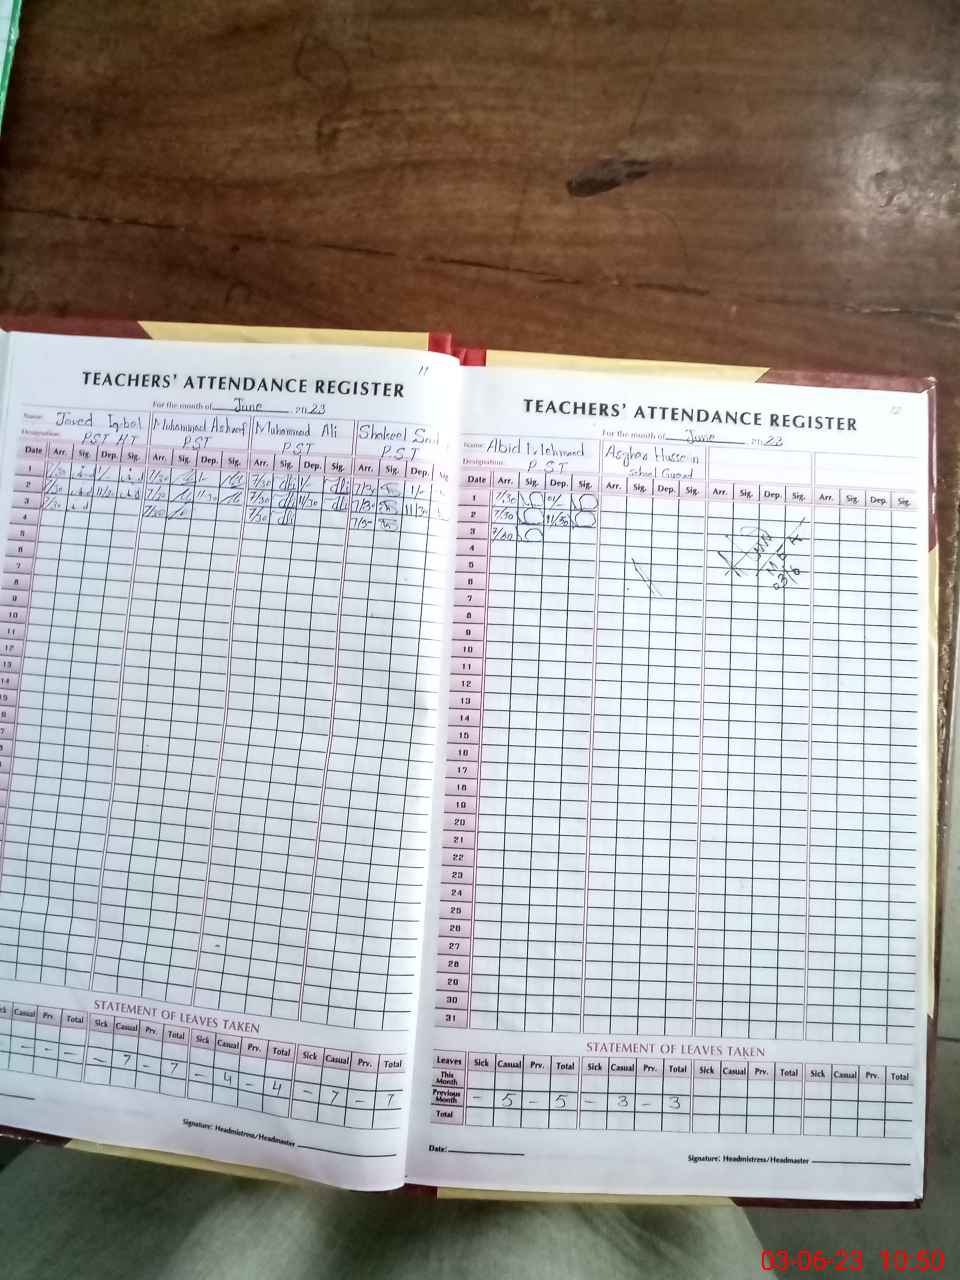 11
TEACHERS' ATTENDANCE REGISTER
For the month of June 2023
Name: Javed Iqbal Muhammad Ashraf Muhammad Ali Shakeel
Designation: PST HT PST PST PST
Date Arr. Sig. Dep. Sig. Arr. Sig. Dep. Sig. Arr. Sig. Dep. Sig. Arr. Sig. Dep. Sig.
1 7/30 1/- 7/30 1/- 7/30 1/- 7/30 1/-
2 7/30 11/30 7/30 11/30 7/30 11/30 7/30 11/30
3 7/30 7/30 7/30 7/30
4
5
6
7
8
9
10
11
12
13
14
15
STATEMENT OF LEAVES TAKEN
Casual Prv. Total Sick Casual Prv. Total Sick Casual Prv. Total Sick Casual Prv. Total
- - - - 7 - 7 - 4 - 4 - 7 - 7
Signature: Headmistress/Headmaster
12
TEACHERS' ATTENDANCE REGISTER
For the month of June 2023
Name: Abid Mehmood Asghar Hussain
Designation: PST School Guard
Date Arr. Sig. Dep. Sig. Arr. Sig. Dep. Sig. Arr. Sig. Dep. Sig. Arr. Sig. Dep. Sig.
1 7/30 01/-
2 7/30 11/30
3 7/30
4
5
6
7
8
9
10
11
12
13
14
15
16
17
18
19
20
21
22
23
24
25
26
27
28
29
30
31
MEA
STATEMENT OF LEAVES TAKEN
Leaves Sick Casual Prv. Total Sick Casual Prv. Total Sick Casual Prv. Total Sick Casual Prv. Total
This Month
Previous Month - 5 - 5 - 3 - 3
Total
Date:
Signature: Headmistress/Headmaster
03-06-23 10:50